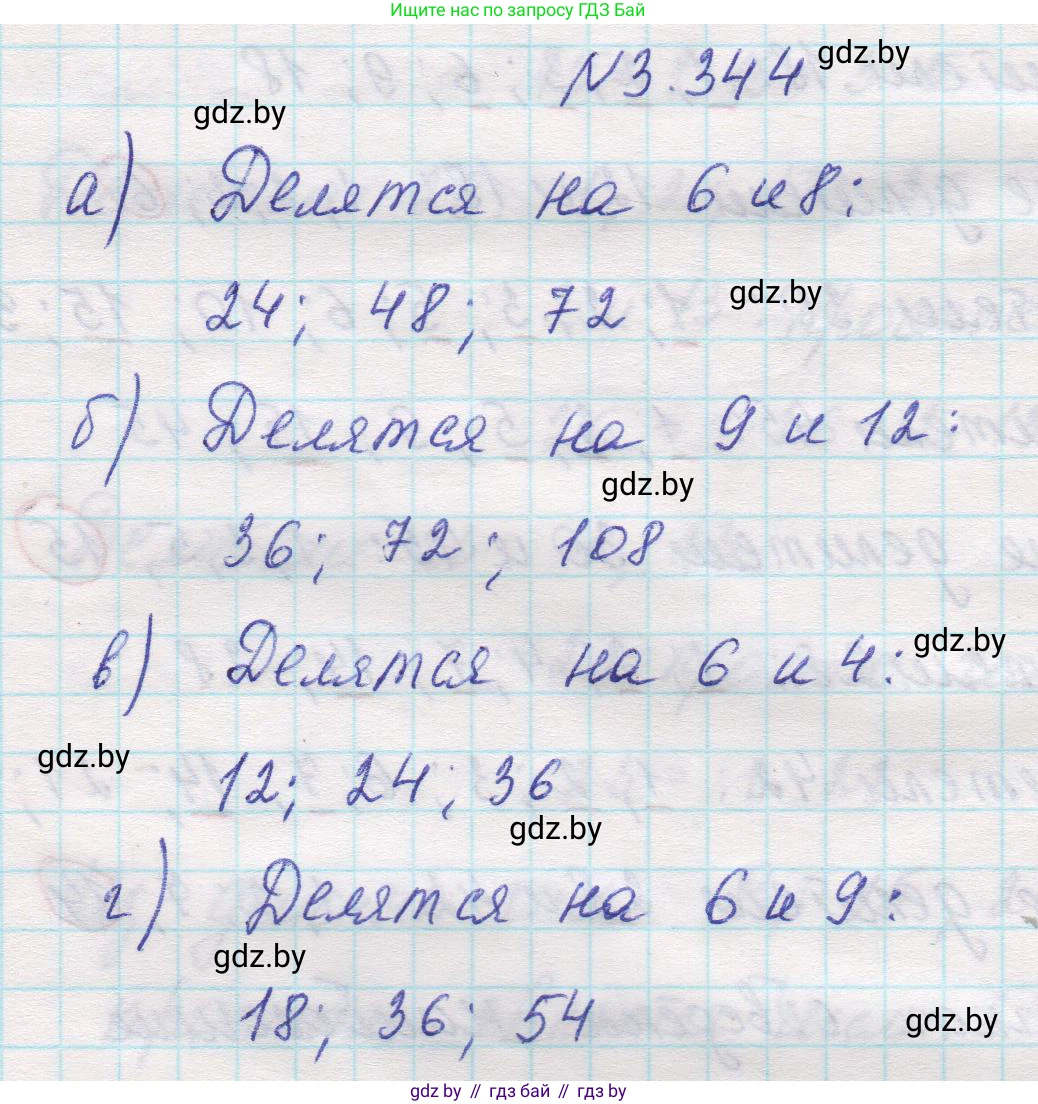 Ищите нас по запросу ГДЗ Бай
N3.344 gdz.by
gdz.by
а) Делятся на 6 и 8:
24; 48; 72 gdz.by
б) Делятся на 9 и 12:
gdz.by
36; 72; 108
в) Делятся на 6 и 4: gdz.by
gdz.by
12; 24; 36
gdz.by
г) Делятся на 6 и 9:
gdz.by
18; 36; 54 gdz.by
gdz.by // гдз бай // гдз by